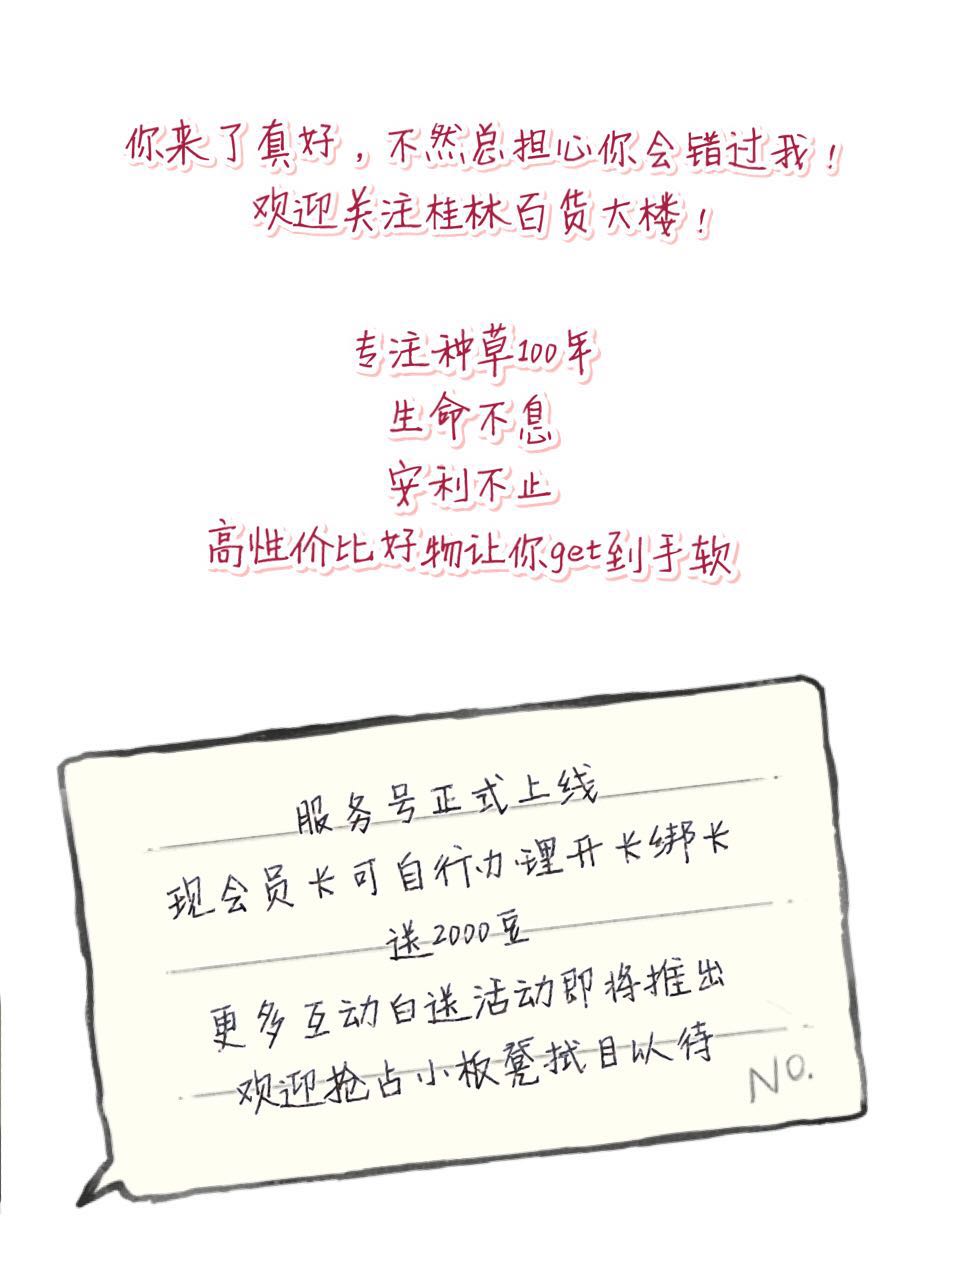 你来了真好，不然总担心你会错过我！
欢迎关注桂林百货大楼！
专注种草100年
生命不息
安利不止
高性价比好物让你get到手软
服务号正式上线
现会员长可自行办理开长绑长
送2000豆
更多互动白送活动即将推出
欢迎抢占小板凳拭目以待
NO.